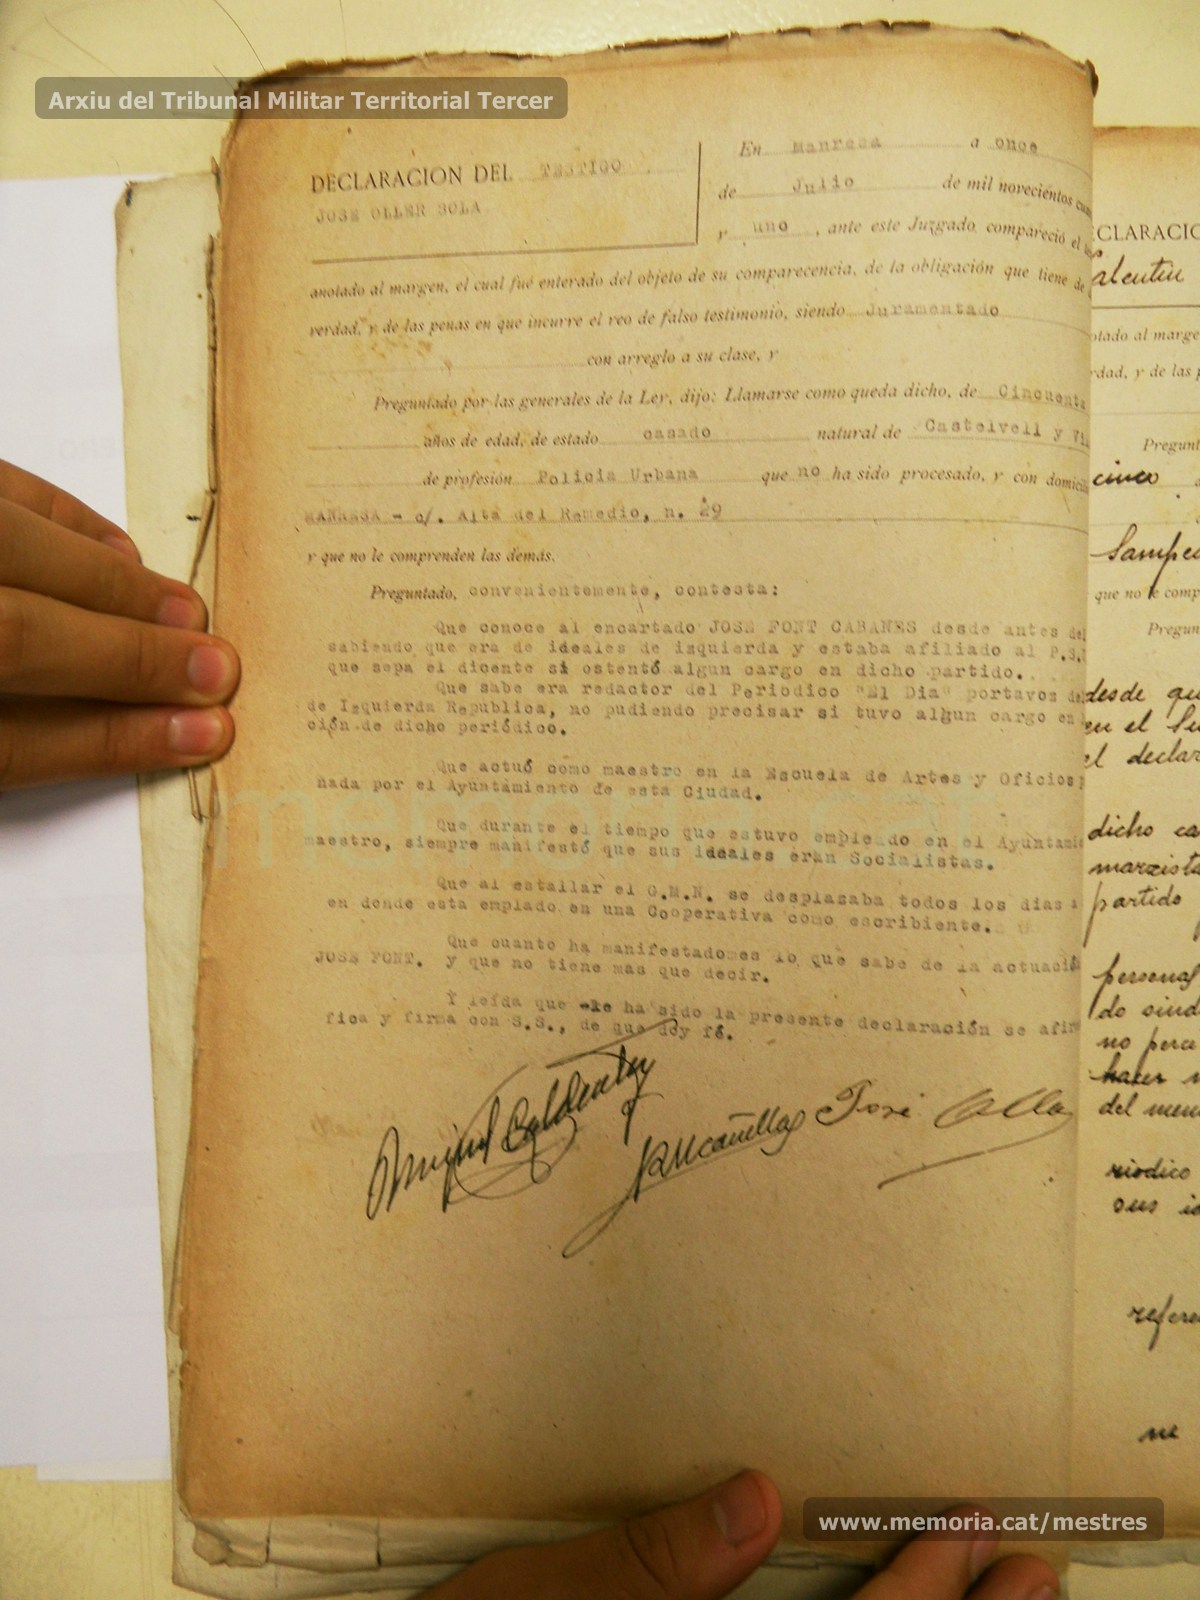 Arxiu del Tribunal Militar Territorial Tercer
DECLARACION DEL TESTIGO
JOSE OLLER SOLA
En Manresa a once
de Julio de mil novecientos
y uno, ante este Juzgado compareció el
anotado al margen, el cual fué enterado del objeto de su comparecencia, de la obligación que tiene de
verdad, y de las penas en que incurre el reo de falso testimonio, siendo Juramentado
con arreglo a su clase, y
Preguntado por las generales de la Ley, dijo: Llamarse como queda dicho, de Cincuenta
años de edad, de estado casado natural de Castelvell y Vi
de profesión Policia Urbana que no ha sido procesado, y con domicil
MANRESA - c/. Alta del Remedio, n. 29
y que no le comprenden las demás.
Preguntado, convenientemente, contesta:
Que conoce al encartado JOSE FONT CABANES desde antes del
sabiendo que era de ideales de izquierda y estaba afiliado al P.S.
que sepa el dicente si ostentó algun cargo en dicho partido.
Que sabe era redactor del Periodico "El Dia" portavos de
de Izquierda Republica, no pudiendo precisar si tuvo algun cargo en
ción de dicho periódico.
Que actuó como maestro en la Escuela de Artes y Oficios
nada por el Ayuntamiento de esta Ciudad.
Que durante el tiempo que estuvo empleado en el Ayuntamie
maestro, siempre manifestó que sus ideales eran Socialistas.
Que al estallar el G.M.N. se desplazaba todos los dias a
en donde esta emplado en una Cooperativa como escribiente.
Que cuanto ha manifestadomes lo que sabe de la actuació
JOSE FONT. y que no tiene mas que decir.
Y leída que le ha sido la presente declaración se afir
fica y firma con S.S., de que doy fé.
Miguel Caldentey
José Olla
CLARACIO
alentin
otado al marge
rdad, y de las p
Pregunt
cinco
Sampe
que no le comp
Pregun
desde qu
en el Su
el declar
dicho ca
marxista
partido
personal
do sind
no perce
hacer
del men
riodico
sus i
refere
ne
www.memoria.cat/mestres